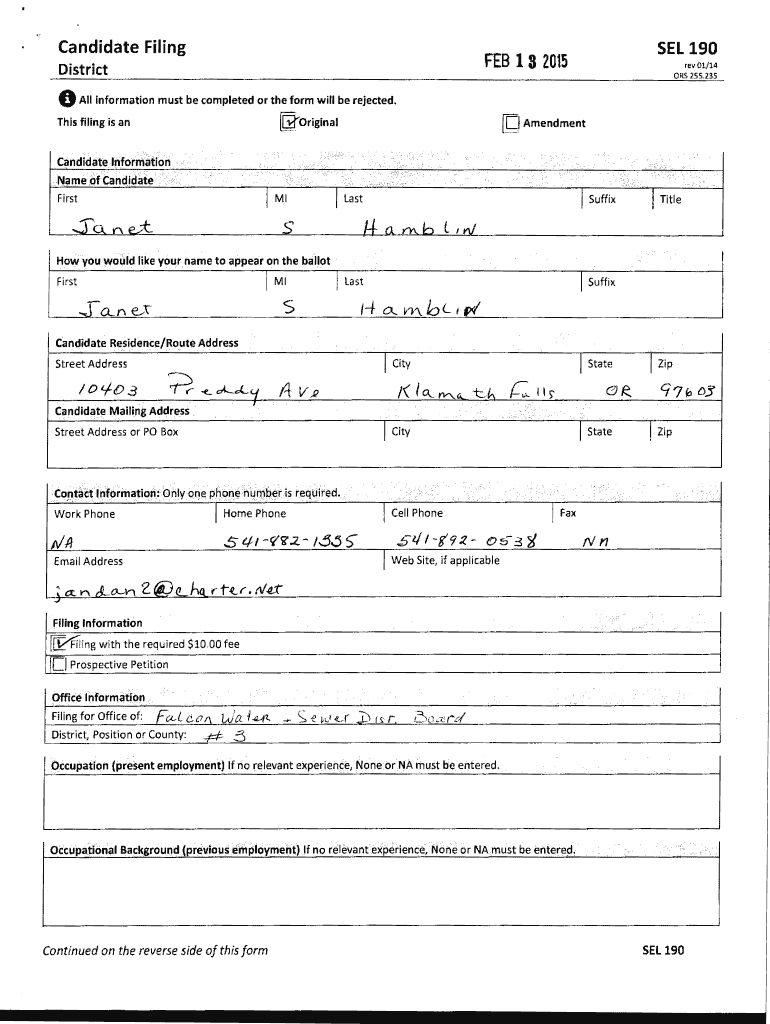 Candidate Filing
District
FEB 18 2015
SEL 190
rev 01/14
ORS 255.235
i All information must be completed or the form will be rejected.
This filing is an Original Amendment
Candidate Information
Name of Candidate
First MI Last Suffix Title
Janet S Hamblin
How you would like your name to appear on the ballot
First MI Last Suffix
Janet S Hamblin
Candidate Residence/Route Address
Street Address City State Zip
10403 Preddy Ave Klamath Falls OR 97603
Candidate Mailing Address
Street Address or PO Box City State Zip
Contact Information: Only one phone number is required.
Work Phone Home Phone Cell Phone Fax
NA 541-882-1335 541-892-0538 NA
Email Address Web Site, if applicable
jandan2@charter.Net
Filing Information
Filing with the required $10.00 fee
Prospective Petition
Office Information
Filing for Office of: Falcon Water - Sewer Dist. Board
District, Position or County: # 3
Occupation (present employment) If no relevant experience, None or NA must be entered.
Occupational Background (previous employment) If no relevant experience, None or NA must be entered.
Continued on the reverse side of this form
SEL 190